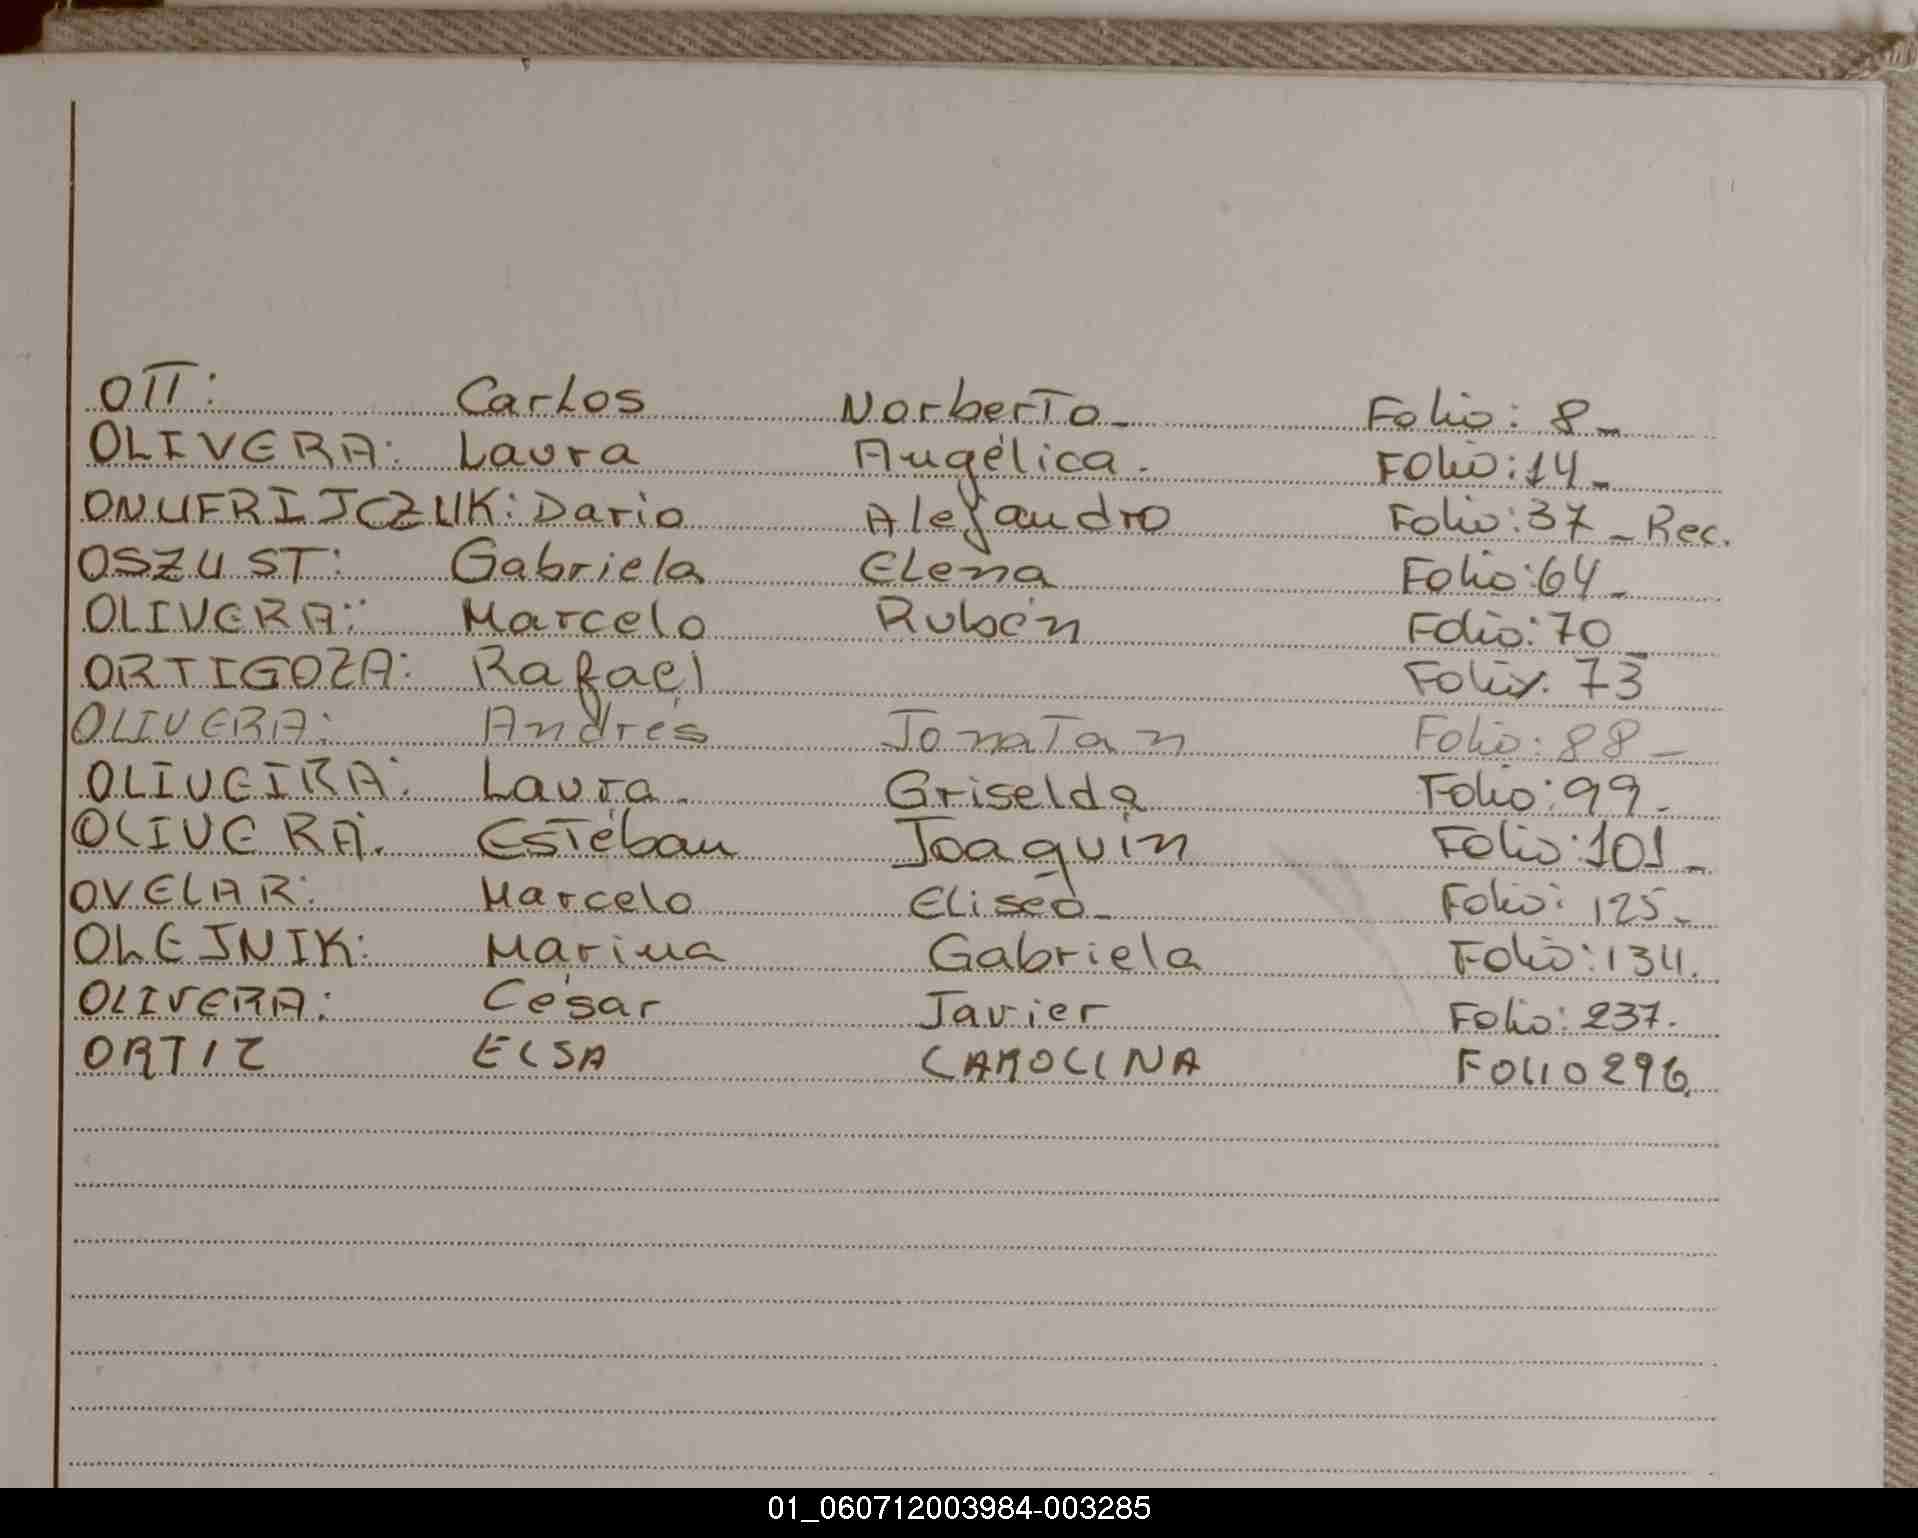 OTT: Carlos Norberto_ Folio: 8_
OLIVERA: Laura Angélica. Folio: 14_
ONUFRIJCZUK: Dario Alejandro Folio: 37_ Rec.
OSZUST: Gabriela Elena Folio: 64_
OLIVERA: Marcelo Rubén Folio: 70_
ORTIGOZA: Rafael Folio: 73
OLIVERA: Andrés Jonatan Folio: 88_
OLIVEIRA: Laura. Griselda Folio: 99.
OLIVERA. Estéban Joaquín Folio: 101_
OVELAR: Marcelo Eliseo_ Folio: 125_
OLEJNIK: Marina Gabriela Folio: 134.
OLIVERA: César Javier Folio: 237.
ORTIZ ELSA CAROLINA FOLIO 296.
01_060712003984-003285